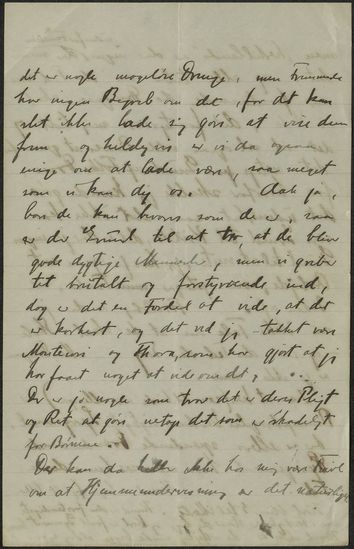 det er nogle magelöse Drenge, men Fremmede
har ingen Begreb om det, for det kan
slet ikke lade sig göre at vise dem
frem og heldigvis er vi da ogsaa
enige om at lade være, saa meget
som vi kan dy os. Aak ja,
bare de kan bevares som de er, saa
er der Grund til at tro, at de bliver
gode dygtige Mennesker, men vi griber
tit brutalt og forstyrrende ind,
dog er det en Fordel at vide, at det
er forkert, og det ved jeg takket være
Montessori og Thora, som har gjort at jeg
har faaet noget at vide om det,
Der er jo nogle som tror det er deres Pligt
og Ret at göre netop det som er skadeligt
for Börnene.
Der kan da heller ikke hos mig være Tvivl
om at Hjemmeundervisning er det naturligste